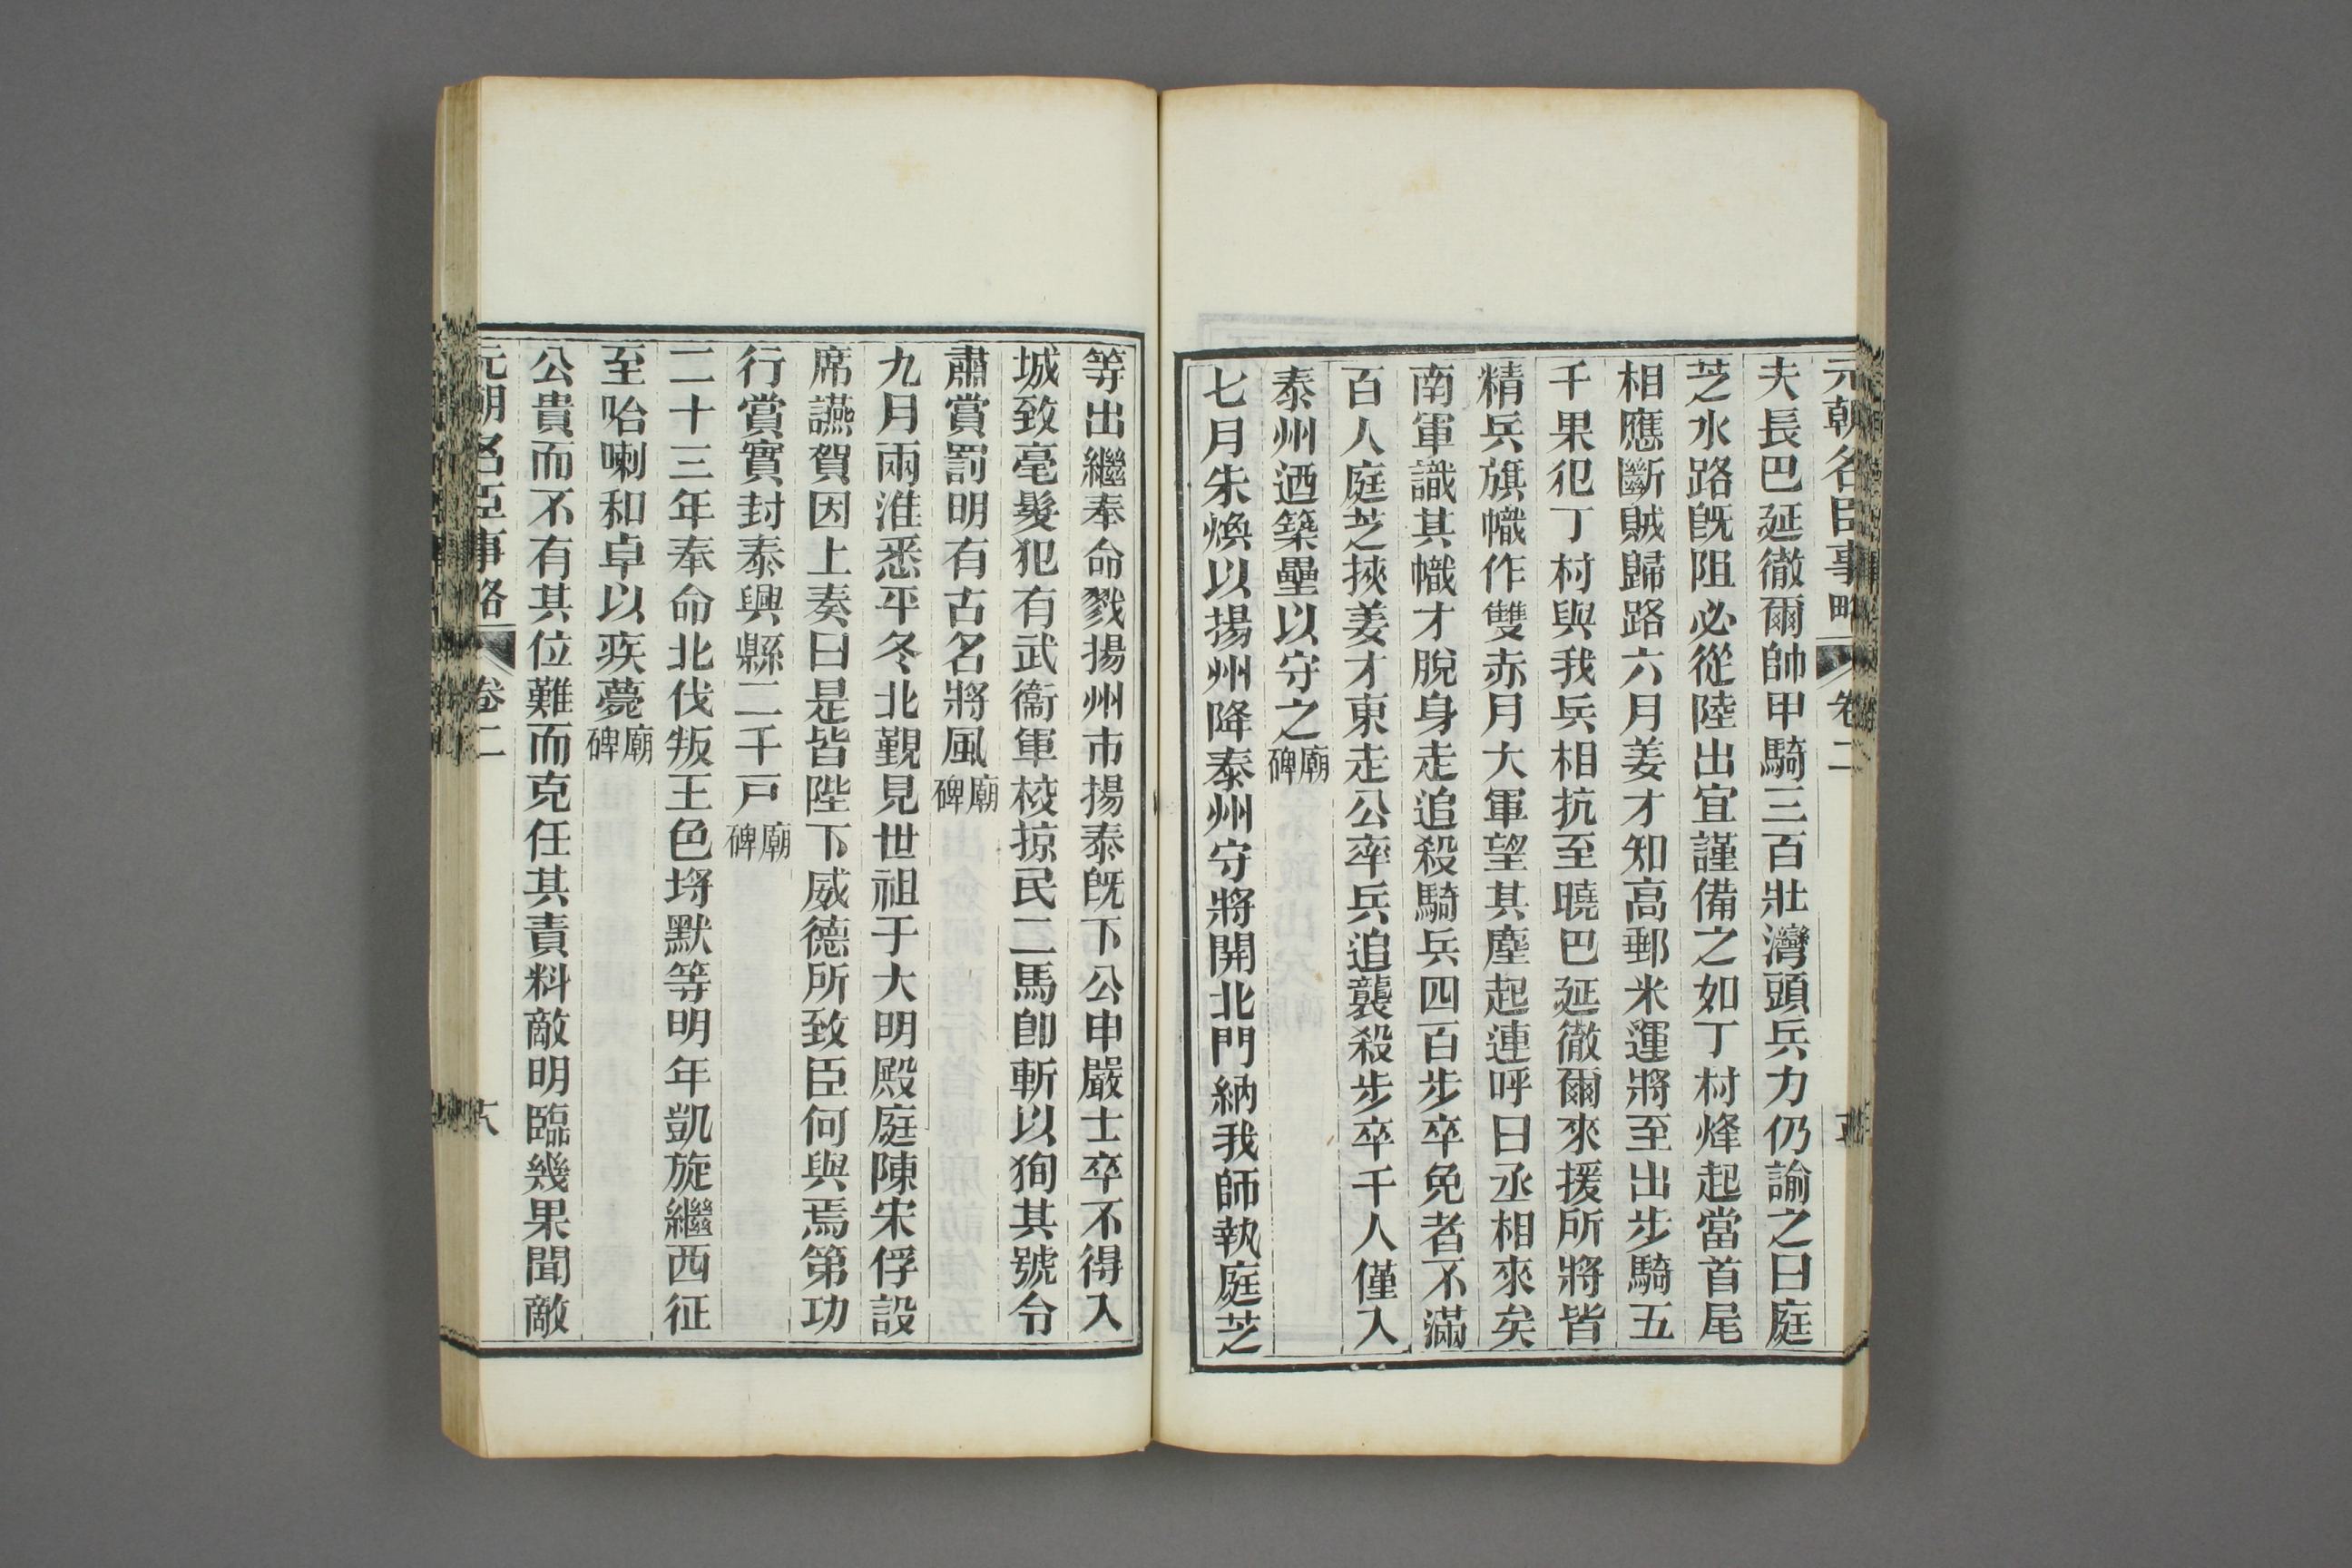 元朝名臣事略 卷二
夫長巴延徹爾帥甲騎三百壯灣頭兵力仍諭之曰庭
芝水路旣阻必從陸出宜謹備之如丁村烽起當首尾
相應斷賊歸路六月姜才知高郵米運將至出步騎五
千果犯丁村與我兵相抗至曉巴延徹爾來援所將皆
精兵旗幟作雙赤月大軍望其塵起連呼曰丞相來矣
南軍識其幟才脫身走追殺騎兵四百步卒免者不滿
百人庭芝挾姜才東走公卒兵追襲殺步卒千人僅入
泰州迺築壘以守之廟碑
七月朱煥以揚州降泰州守將開北門納我師執庭芝
等出繼奉命戮揚州市揚泰旣下公申嚴士卒不得入
城致毫髮犯有武衞軍校掠民二馬卽斬以狥其號令
肅賞罰明有古名將風廟碑
九月兩淮悉平冬北覲見世祖于大明殿庭陳宋俘設
席讌賀因上奏曰是皆陛下威德所致臣何與焉第功
行賞實封泰興縣二千戸廟碑
二十三年奉命北伐叛王色埒默等明年凱旋繼西征
至哈喇和卓以疾薨廟碑
公貴而不有其位難而克任其責料敵明臨幾果聞敵
元朝名臣事略 卷二